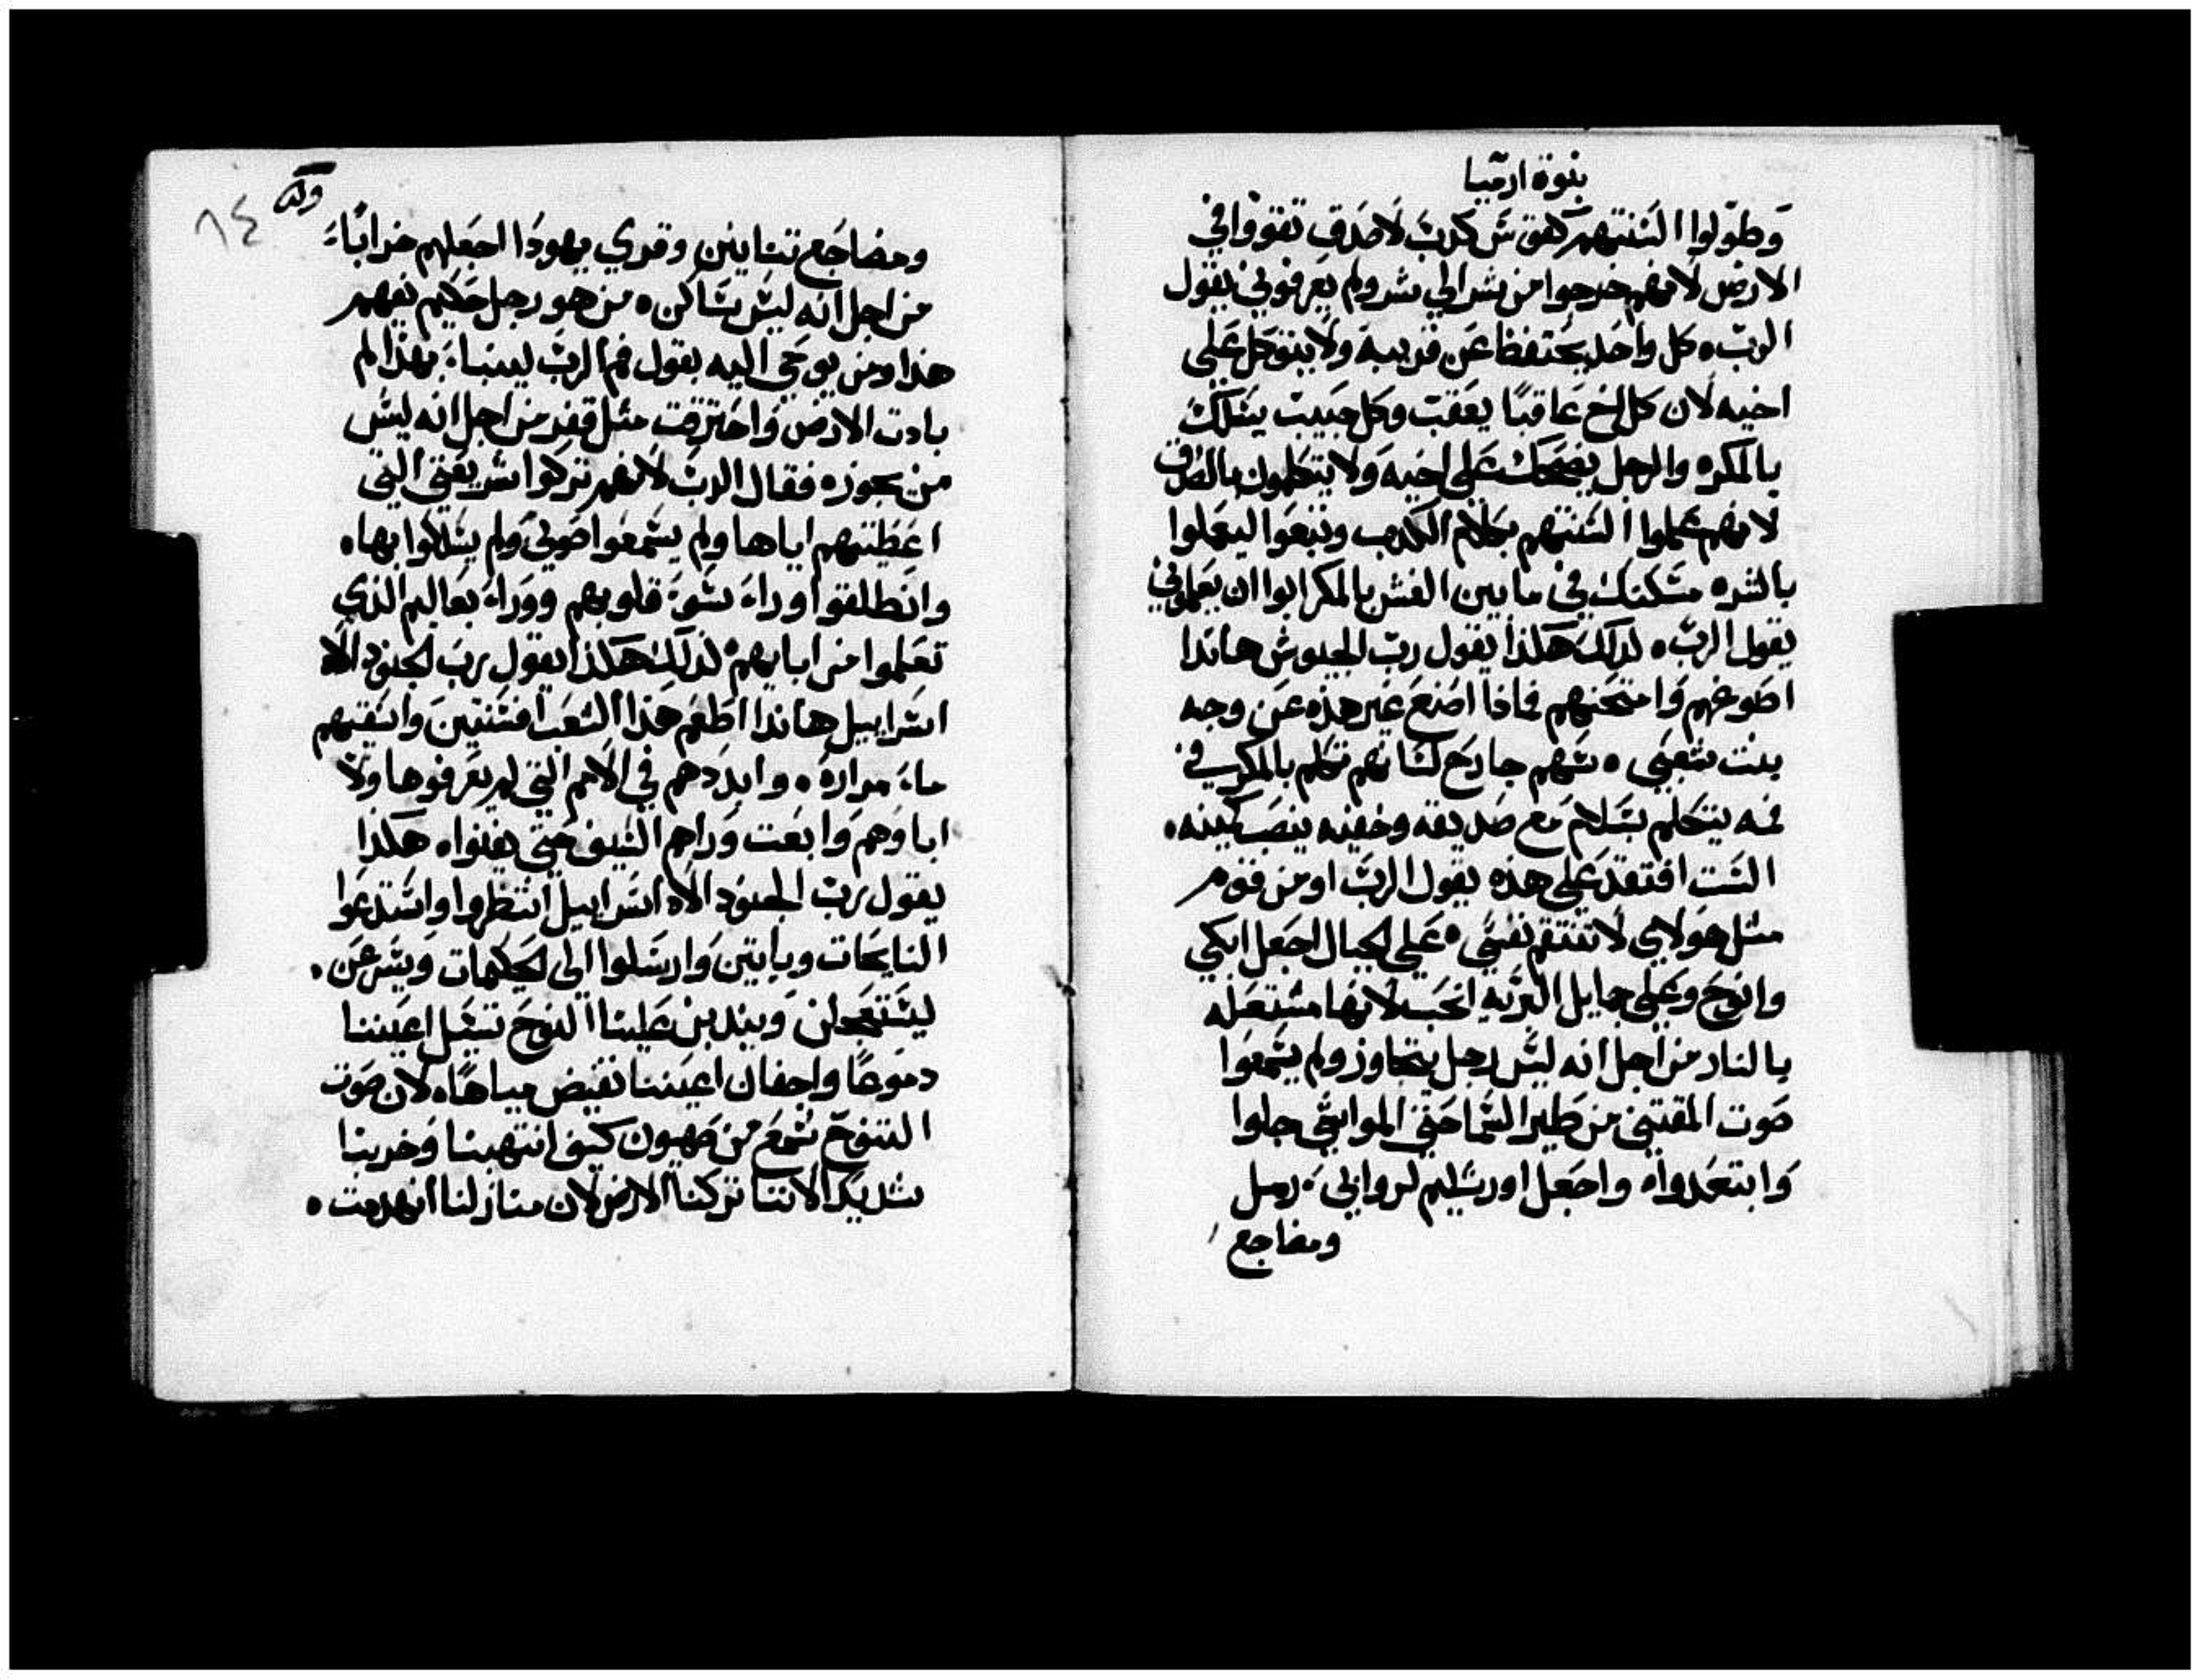 بنوة ارميا
وطولوا السنتهم كقوس كدب لا صدق تقووا في
الارض لانهم خرجوا من شر الي شر ولم يعرفوني يقول
الرب ٥ كل واحد يحتفظ عن قريبه ولا يتوكل علي
اخيه لان كل اخ عاقبًا يعقب وكل حبيب يسلك
بالمكر ٥ والرجل يضحك علي اخيه ولا يتكلمون بالصدق
لانهم علموا السنتهم بكلام الكدب وتبعوا ليعملوا
بالشر ٥ مسكنك في ما بين الغش بالمكر ابوا ان يعلموني
يقول الرب ٥ لدلك هكذا يقول رب الجيوش هاندا
اصوغهم وامتحنهم فماذا اصنع غير هذه عن وجه
بنت شعبي ٥ سهم جارح لسانهم تكلم بالمكر في
فمه يتكلم بسلام مع صديقه وخفيه ينصب كمينه ٥
الست افتقد علي هذه يقول الرب او من قوم
مثل هولاي لا تنتقم نفسي ٥ علي الجبال اجعل ابكي
وانوح وعلي جمايل البريه انحب لانها مشتعله
بالنار من اجل انه ليس رجل يتجاوز ولم يسمعوا
صوت المقتني من طير السما حتي المواشي جلوا
وابتعدوا ٥ واجعل اورشليم لروابي رمل
ومضاجع
٨٤
ومضاجع تنانين وقري يهودا اجعلهم خرابًا
من اجل انه ليس ساكن ٥ من هو رجل حكيم يفهم
هذا ومن يوحي اليه بقول فم الرب لينبا بهذا لم
بادت الارض واحترقت مثل قفر من اجل انه ليس
من يجوز ٥ فقال الرب لانهم تركوا شريعتي التي
اعطيتهم اياها ولم يسمعوا صوتي ولم يسلكوا بها ٥
وانطلقوا وراء سوء قلوبهم ووراء بعاليم الذي
تعلموا من ابايهم ٥ لذلك هكذا يقول رب الجنود الاه
اسراييل هاندا اطعم هذا الشعب افسنتين واسقيهم
ماء مرارة ٥ وابددهم في الامم التي لم يعرفوها ولا
اباوهم وابعت وراهم السيف حتي يفنوا ٥ هكذا
يقول رب الجنود الاه اسراييل انتظروا واستدعوا
النايحات وياتين وارسلوا الي الحكيمات ويسرعن ٥
ليستعجلن ويندبن علينا النوح تسيل اعيننا
دموعًا واجفان اعيننا تفيض مياهًا ٥ لان صوت
التنوح سمع من صهيون كيف انتهبنا وخربنا
شديدًا لاننا تركنا الارض لان منازلنا انهدمت ٥